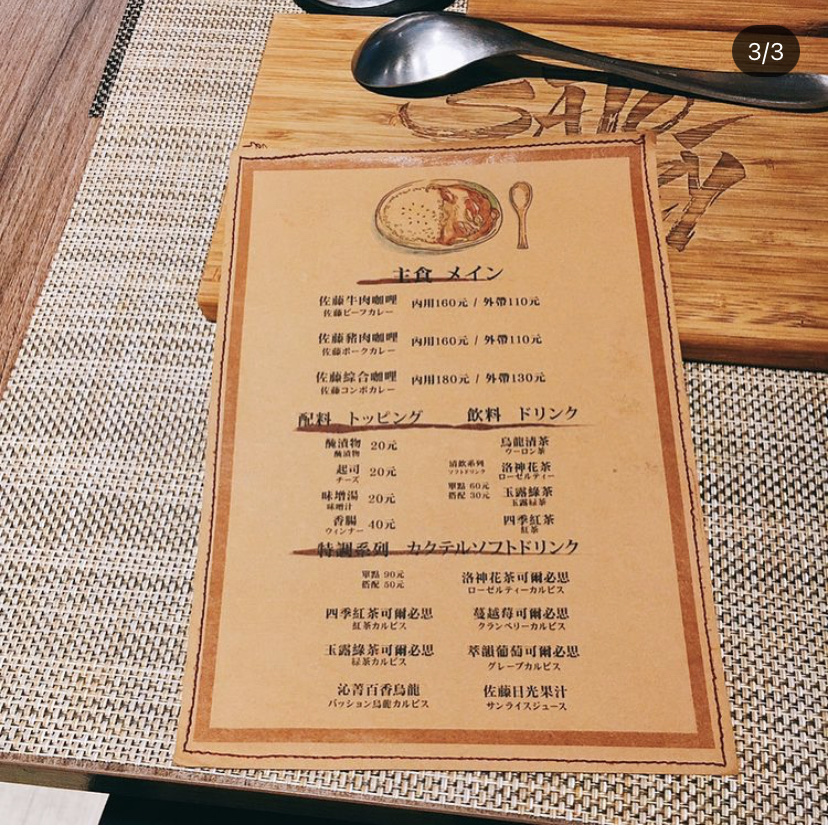 3/3
SATO
主食 メイン
佐藤牛肉咖哩 內用160元 / 外帶110元
佐藤ビーフカレー
佐藤豬肉咖哩 內用160元 / 外帶110元
佐藤ポークカレー
佐藤綜合咖哩 內用180元 / 外帶130元
佐藤コンボカレー
配料 トッピング
醃漬物 20元
醃漬物
起司 20元
チーズ
味增湯 20元
味增汁
香腸 40元
ウィンナー
飲料 ドリンク
清飲系列
ソフトドリンク
單點 60元
搭配 30元
烏龍清茶
ウーロン茶
洛神花茶
ローゼルティー
玉露綠茶
玉露緑茶
四季紅茶
紅茶
特調系列 カクテルソフトドリンク
單點 90元
搭配 50元
洛神花茶可爾必思
ローゼルティーカルピス
四季紅茶可爾必思
紅茶カルピス
蔓越莓可爾必思
クランベリーカルピス
玉露綠茶可爾必思
緑茶カルピス
萃韻葡萄可爾必思
グレープカルピス
沁菁百香烏龍
パッション烏龍カルピス
佐藤日光果汁
サンライスジュース